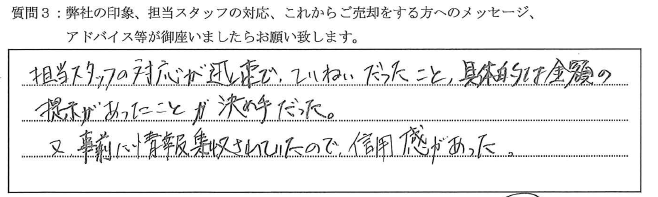 質問3：弊社の印象、担当スタッフの対応、これからご売却をする方へのメッセージ、
アドバイス等が御座いましたらお願い致します。
担当スタッフの対応が迅速で、ていねいだったこと、具体的な金額の
提示があったことが決め手だった。
又 事前に情報集収されていたので、信用感があった。